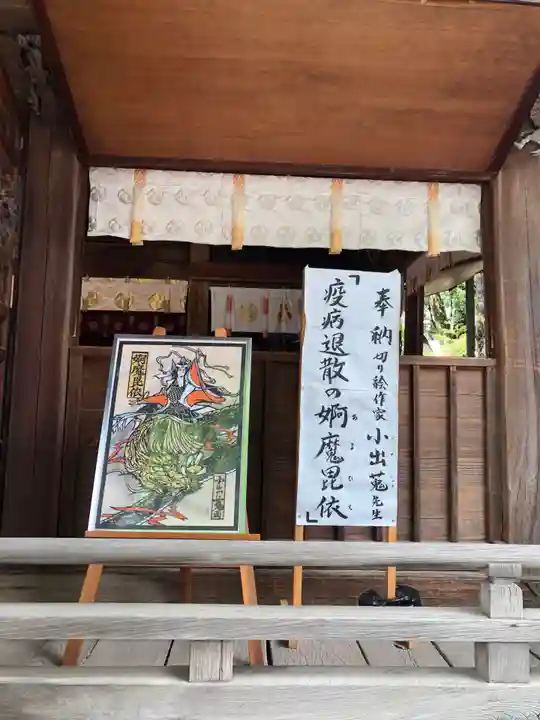 奉納 切り絵作家 小出蒐先生
「疫病退散の婀魔毘依」
あまびえ
婀魔毘依